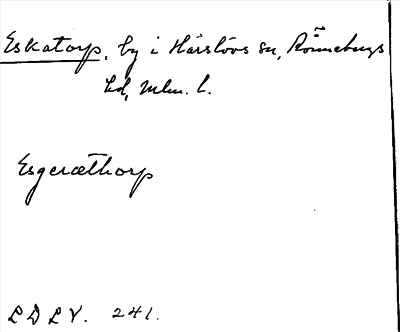 Eskatorp, by i Härslövs sn, Rönnebergs
hd, Mlm. l.
Esgeræthorp
L D L V. 241.